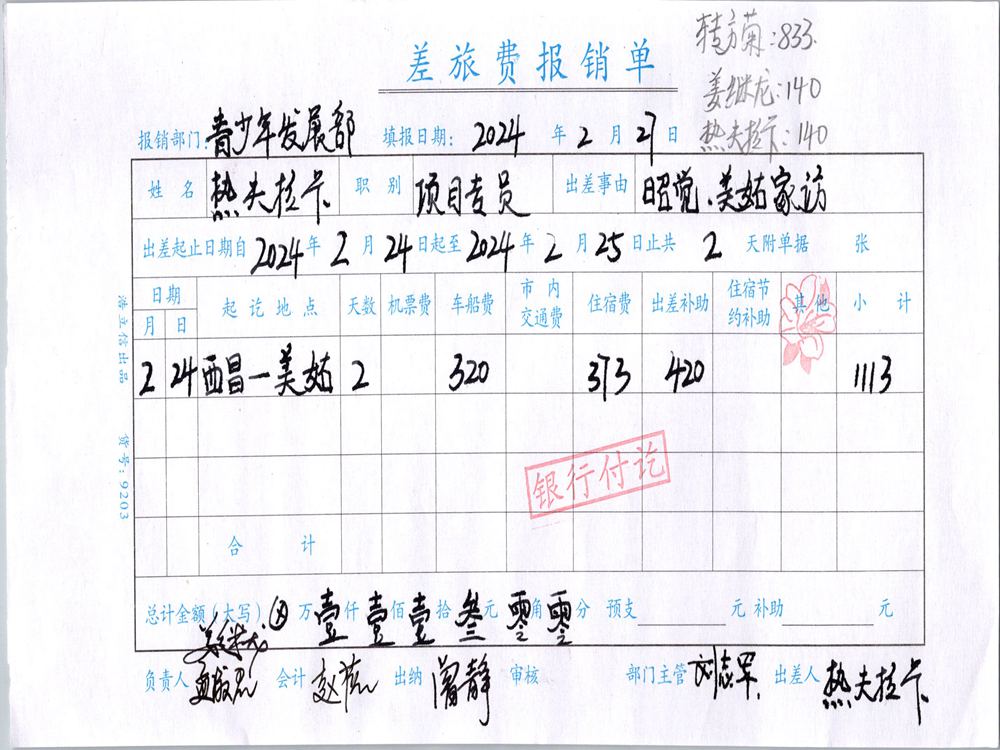 转方菊:833.
差旅费报销单
姜继龙:140
热夫拉卡:140
报销部门:青少年发展部 填报日期: 2024 年 2 月 27 日
姓名 热夫拉卡 职别 项目专员 出差事由 昭觉、美姑家访
出差起止日期自 2024 年 2 月 24 日起至 2024 年 2 月 25 日止共 2 天附单据 张
日期 起讫地点 天数 机票费 车船费 市内交通费 住宿费 出差补助 住宿节约补助 其他 小计
月 日
2 24 西昌—美姑 2 320 373 420 1113
银行付讫
合计
总计金额(大写) 万 壹 仟 壹 佰 壹 拾 叁 元 零 角 零 分 预支 元 补助 元
姜继龙
负责人 会计 出纳 曾静 审核 部门主管 刘志军 出差人 热夫拉卡
浩立信出品 货号:9203